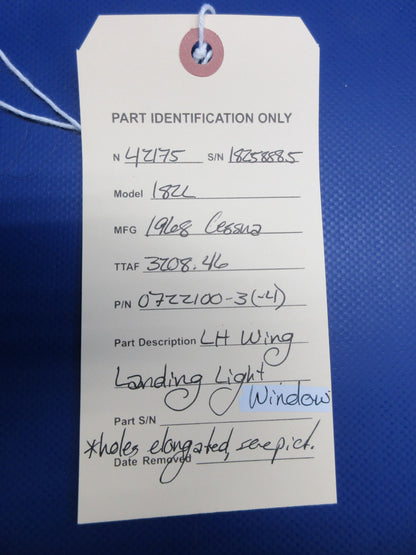 PART IDENTIFICATION ONLY
N 42175 S/N 18258885
Model 182L
MFG 1968 Cessna
TTAF 3208.46
P/N 0722100-3(-4)
Part Description LH Wing
Landing Light
Window
Part S/N
*holes elongated, see pict.
Date Removed